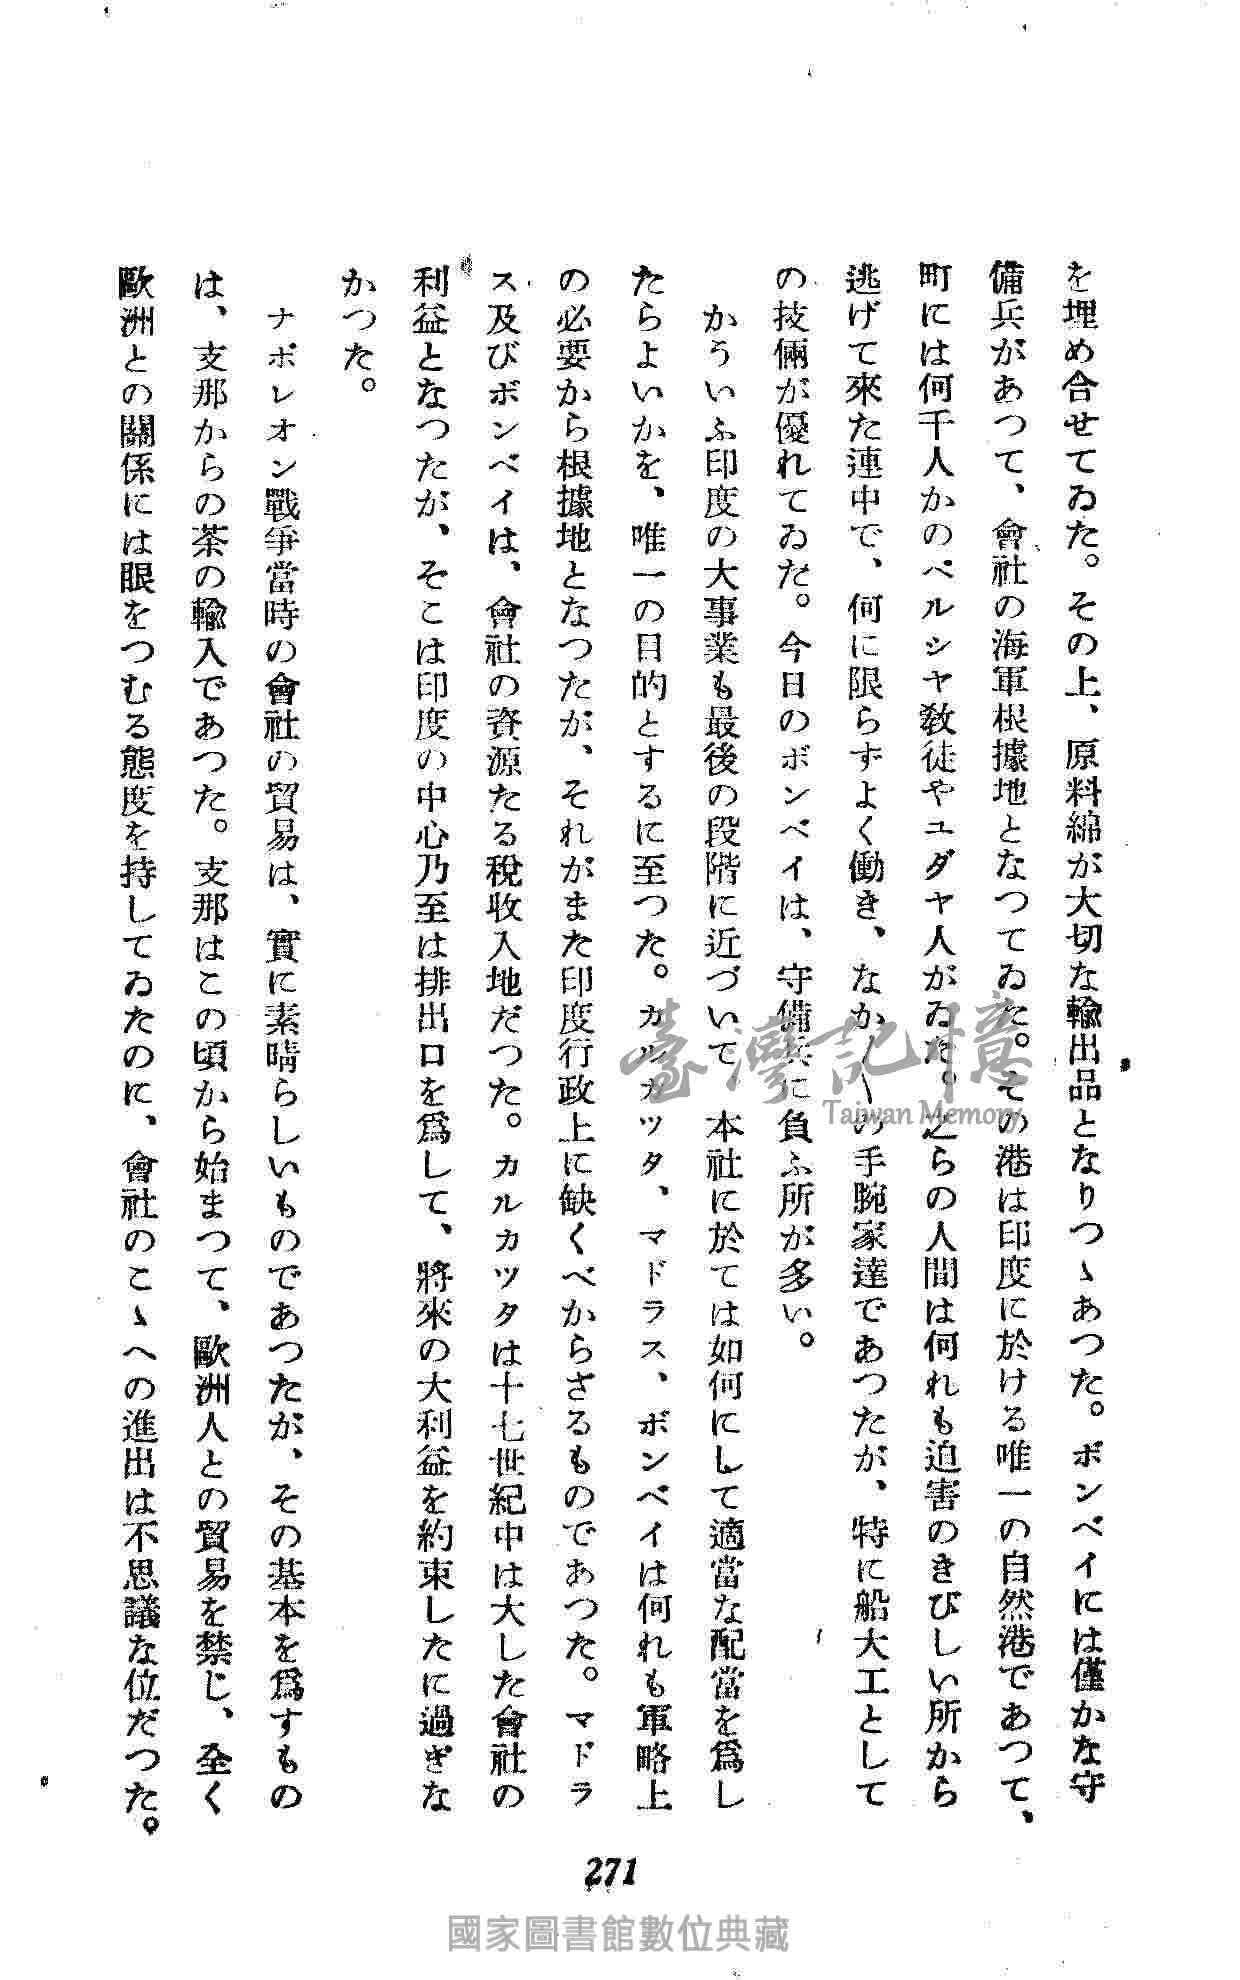 を埋め合せてゐた。その上、原料綿が大切な輸出品となりつゝあつた。ボンベイには僅かな守
備兵があつて、會社の海軍根據地となつてゐた。その港は印度に於ける唯一の自然港であつて、
町には何千人かのペルシヤ教徒やユダヤ人がゐた。之らの人間は何れも迫害のきびしい所から
逃げて來た連中で、何に限らずよく働き、なか〱の手腕家達であつたが、特に船大工として
の技倆が優れてゐた。今日のボンベイは、守備兵に負ふ所が多い。
かういふ印度の大事業も最後の段階に近づいて、本社に於ては如何にして適當な配當を爲し
たらよいかを、唯一の目的とするに至つた。カルカツタ、マドラス、ボンベイは何れも軍略上
の必要から根據地となつたが、それがまた印度行政上に缺くべからざるものであつた。マドラ
ス及びボンベイは、會社の資源たる稅收入地だつた。カルカツタは十七世紀中は大した會社の
利益となつたが、そこは印度の中心乃至は排出口を爲して、將來の大利益を約束したに過ぎな
かつた。
ナポレオン戰爭當時の會社の貿易は、實に素晴らしいものであつたが、その基本を爲すもの
は、支那からの茶の輸入であつた。支那はこの頃から始まつて、歐洲人との貿易を禁じ、全く
歐洲との關係には眼をつむる態度を持してゐたのに、會社のこゝへの進出は不思議な位だつた。
271
臺灣記憶
Taiwan Memory
國家圖書館數位典藏